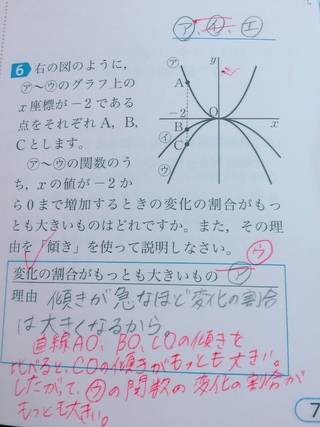 ㋐、㋑、㋓
6 右の図のように，
㋐〜㋒のグラフ上の
x座標が−2である
点をそれぞれA，B，
Cとします。
㋐ y
A
−2 O
B x
㋑ C
㋒
㋐〜㋒の関数のう
ち，xの値が−2か
ら0まで増加するときの変化の割合がもっ
とも大きいものはどれですか。また，その理
由を「傾き」を使って説明しなさい。
㋒
変化の割合がもっとも大きいもの ㋐
理由 傾きが急なほど変化の割合
は大きくなるから。
直線AO、BO、COの傾きを
比べると、COの傾きがもっとも大きい。
したがって、㋒の関数の変化の割合が
もっとも大きい。
7